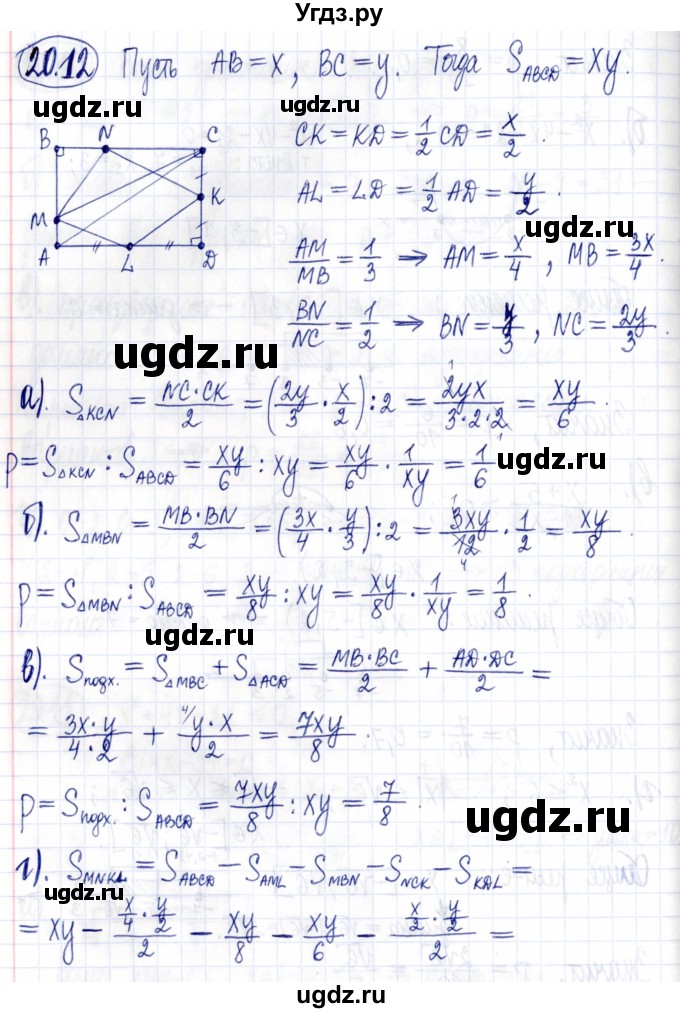 Угдз.ру
20.12 Пусть AB = x, BC = y. Тогда S_ABCD = xy.
ugdz.ru ugdz.ru
B N C
M K
A L D
CK = KD = 1/2 CD = x/2
AL = LD = 1/2 AD = y/2.
ugdz.ru ugdz.ru
AM/MB = 1/3 ⟹ AM = x/4, MB = 3x/4.
BN/NC = 1/2 ⟹ BN = y/3, NC = 2y/3.
ugdz.ru
а). S_ΔKCN = NC·CK/2 = (2y/3 · x/2) : 2 = 2yx/3·2·2 = xy/6
ugdz.ru
p = S_ΔKCN : S_ABCD = xy/6 : xy = xy/6 · 1/xy = 1/6
ugdz.ru
б). S_ΔMBN = MB·BN/2 = (3x/4 · y/3) : 2 = 3xy/12 · 1/2 = xy/8.
p = S_ΔMBN : S_ABCD = xy/8 : xy = xy/8 · 1/xy = 1/8.
ugdz.ru ugdz.ru
в). S_подх. = S_ΔMBC + S_ΔACD = MB·BC/2 + AD·DC/2 =
= 3x·y/4·2 + 4/ y·x/2 = 7xy/8.
p = S_подх. : S_ABCD = 7xy/8 : xy = 7/8.
ugdz.ru
г). S_MNKL = S_ABCD − S_AML − S_MBN − S_NCK − S_KDL =
ugdz.ru ugdz.ru
= xy − x/4 · y/2 /2 − xy/8 − xy/6 − x/2 · y/2 /2 =
ugdz.ru